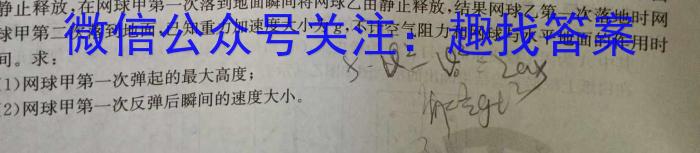 静止释放,在网球甲第一次落到地面瞬间将网球乙由静止释放,结果网球乙第一次落地时网
球甲第二次落到地面,已知重力加速度大小为g,不计空气阻力和网球与水平地面的作用时
间。求:
(1)网球甲第一次弹起的最大高度;
(2)网球甲第一次反弹后瞬间的速度大小。
微信公众号关注:趣找答案